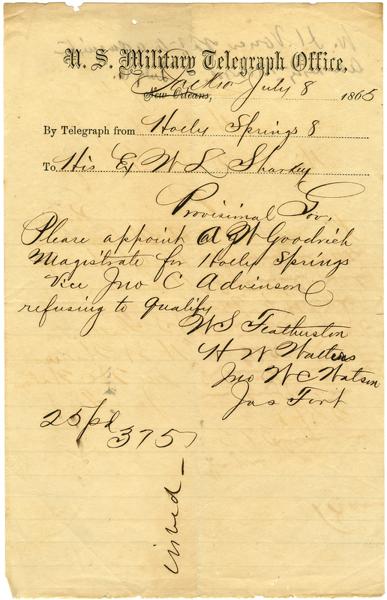 U. S. Military Telegraph Office,
Jackson July 8 1865
New Orleans,
By Telegraph from Holly Springs 8
To His Ex W L Sharkey
Provisional Gov,
Please appoint A W Goodrich
Magistrate for Holly Springs
Vice Jno C Advinson
refusing to qualify
W S Featherston
H W Walters
Jno W C Watson
Jas Fort
25 pd 375